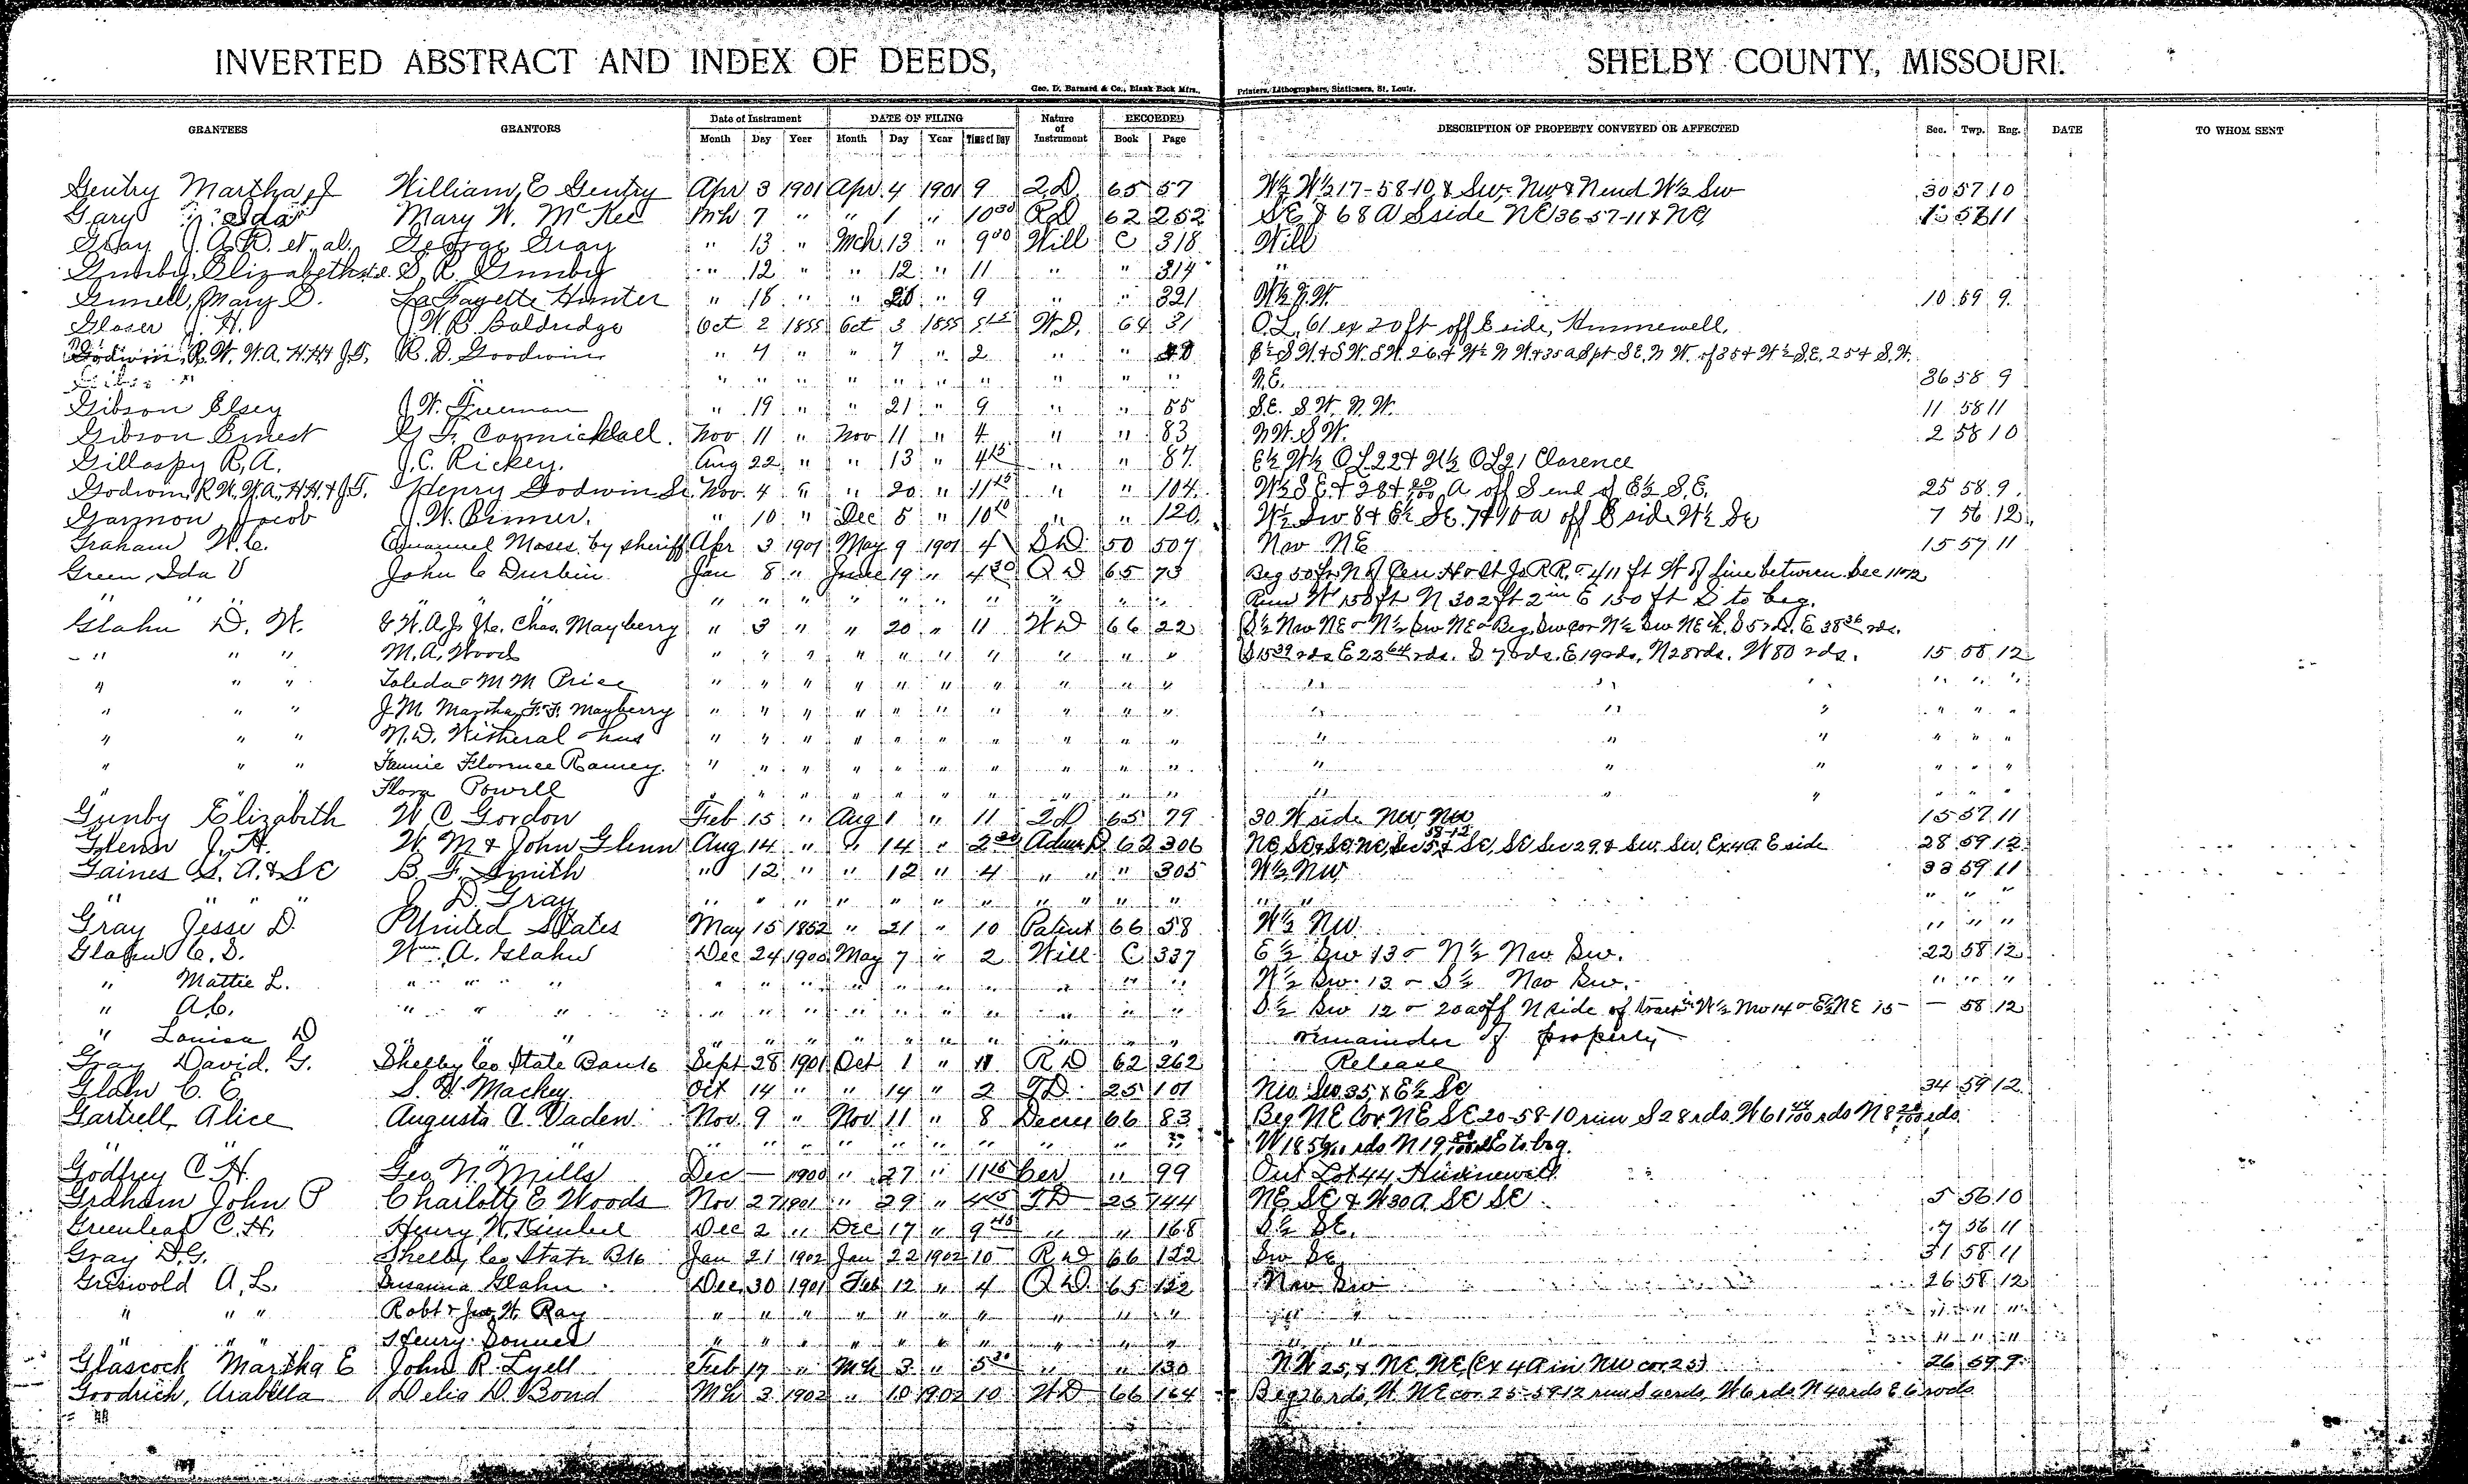 INVERTED ABSTRACT AND INDEX OF DEEDS, SHELBY COUNTY, MISSOURI.
Geo. D. Barnard & Co., Blank Book Mfrs., Printers, Lithographers, Stationers, St. Louis.
GRANTEES GRANTORS Date of Instrument DATE OF FILING Nature of Instrument RECORDED DESCRIPTION OF PROPERTY CONVEYED OR AFFECTED Sec. Twp. Rng. DATE TO WHOM SENT
Month Day Year Month Day Year Time of Day Book Page
Gentry Martha J William E Gentry Apr 3 1901 Apr. 4 1901 9 2D 65 57 W½ W½ 17-58-10, & Sw, Nw & N end W½ Sw 30 57 10
Gary Ida Mary W. McKee Mh 7 " " 1 " 10 30 RD 62 252 SE & 68 A S side NE 36-57-11 & NE 57 11
Gray J. A. R. et. al. George Gray " 13 " Mch 13 " 9 00 Will C 318 Will
Gunby, Elizabeth S. R. Gunby " 12 " " 12 " 11 " " 314 "
Gunell, Mary D. La Fayette Hunter " 18 " " " 9 " " 321 W½ N.W. 10 59 9
Glaser J. H. J. W. B. Baldridge Oct 2 1855 Oct 3 1855 5 15 W.D. 64 31 O.L. 61 ex 20 ft off E side, Hunnewell.
Godwin, R. W. W. A. H.H & J. T. R. D. Goodwin " 4 " " 7 " 2 " " 48 E½ S.W. & S.W. S.W. 26 & W½ N.W. & 35 a S pt S.E. N.W. of 35 & W½ S.E. 25 & S.W.
" " " " " " " " " " N.E. 36 58 9
Gibson Elsey J. W. Freeman " 19 " " 21 " 9 " " 55 S.E. S.W. N.W. 11 58 11
Gibson Ernest G. F. Carmichael. Nov 11 " Nov 11 " 4 " " 83 N.W. S.W. 2 58 10
Gillaspy R. A. J. C. Rickey. Aug 22 " " 13 " 4 15 " " 87 E½ W½ O L 22 & W½ O L 21 Clarence
Godwin, R. W. W. A, H H. & J. T. Henry Godwin Sr. Nov. 4 " " 20 " 11 15 " " 104 W½ S.E. & 28 A off S end of E½ S.E. 25 58 9
Garmon Jacob J. W. Binner. " 10 " Dec 5 " 10 10 " " 120 W½ Sw 8 & E½ SE. 7 & 10 a off E side W½ SE 7 56 12
Graham W. C. Emanuel Moses by sheriff Apr 3 1901 May 9 1901 4 SD 50 507 Nw NE 15 57 11
Green, Ida V John C Durbin Jan 8 " June 19 " 4 30 QD 65 73 Beg 50 ft N of Cen H & St Jo RR. & 411 ft W of line between Sec 11 & 12
" " " " " " " " " " " " " " " Run W 150 ft N 302 ft 2 in E 150 ft S to beg.
Glahn D. W. E W. A. J. Chas. Mayberry " 3 " " 20 " 11 WD 66 22 S½ Nw NE & N½ Sw NE & Beg. Sw cor N½ Sw NE S 5 rds. E 38 36 rds.
" " " M. A. Wood " " " " " " " " " " S 15 39 rds E 23 64 rds. S 7 rds. E 19 rds. N 28 rds. W 80 rds. 15 58 12
" " " Toleda & M M Price " " " " " " " " " " " " " " " "
" " " J. M. Martha, F. F. Mayberry " " " " " " " " " " " " " " " "
" " " N. D. " " " " " " " " " " " " " " " "
" " " Fannie Florence Ramey. " " " " " " " " " " " " " " " "
" " " Flora Powell " " " " " " " " " " " " " " " "
Gunby Elizabith W C Gordon Feb 15 " Aug 1 " 11 2D 65 79 30 W side Nw Nw 15 57 11
Glenn J. H. W. M & John Glenn Aug 14 " " 14 " 2 30 Adm D 62 306 NE, SE & SE NE, Sec 5 58-12 & SE, SE Sec 29 & Sw. Sw. Ex 4 a. E side 28 59 12
Gaines S. A. & SE B. F. Smith " 12 " " 12 " 4 " " " 305 W½ NW 33 59 11
" " " " J. D. Gray " " " " " " " " " " " " " " "
Gray Jesse D. United States May 15 1852 " 21 " 10 Patent 66 58 W½ NW " " "
Glahn C. S. Wm. A. Glahn Dec 24 1900 May 7 " 2 Will C 337 E½ Sw 13 & N½ Nw Sw. 22 58 12
" Mattie L. " " " " " " " " " " " " " " W½ Sw. 13 & S½ Nw Sw. " " "
" A. C. " " " " " " " " " " " " " S½ Sw 12 & 20 a off N side of tract in W½ Nw 14 & E½ NE 15 — — 58 12
" Louisa D " " " " " " " " " " " " " remainder of property
Gray David. G. Shelby Co. State Bank Sept 28 1901 Oct 1 " 11 RD 62 262 Release
Glahn C. E. S. V. Mackey. Oct 14 " " 14 " 2 TD 25 101 Nw Sw 35, & E½ SE 34 59 12
Gartrell, Alice Augusta C. Vaden Nov 9 " Nov 11 " 8 Decree 66 83 Beg NE Cor. NE SE 20-58-10 run S 28 rds. W 61 44/100 rds N 8 rds.
" " " " " " " " " " " " " W 18 56/100 rds N 19 rds E to beg.
Godfrey C. H. Geo N. Mills Dec — 1900 " 27 " 11 15 Cer " 99 Out Lot 44, Hunnewell
Graham John P Charlotte E Woods Nov 27 1901 " 29 " 4 45 TD 25 144 NE SE & W 30 A. SE SE 5 56 10
Greenleaf C. H. Henry W. Kimbel Dec 2 " Dec 17 " 9 45 " " 168 S½ SE. 7 56 11
Gray D. G. Shelby Co State Bk Jan 21 1902 Jan 22 1902 10 RD 66 122 Sw SE 31 58 11
Griswold A. L. Susanna Glahn Dec 30 1901 Feb 12 " 4 QD. 65 122 Nw Sw 26 58 12
" " " Robt & Jno. W. Ray " " " " " " " " " " " " " " "
" " " Henry " " " " " " " " " " " " " " "
Glascock Martha E John R. Lyell Feb 17 " Mch 3 " 5 30 " " 130 NW 25, & NE. NE, (Ex 4 A in NW cor. 25) 26 59 9
Goodrich, Arabella Delia D. Bond Mh 3 1902 " 10 1902 10 WD 66 164 Beg 26 rds, W NE cor 25-59-12 run S 40 rds, W 6 rds N 40 rds E 6 rods